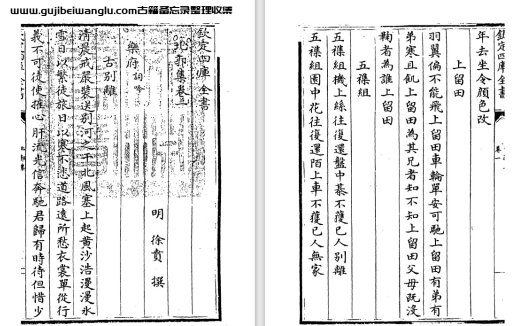 www.gujibeiwanglu.com古籍备忘录整理收集
欽定四庫全書
北郭集卷一
明 徐賁 撰
樂府
古別離
清晨戒嚴裝送別河之干北風塞上起黃沙浩漫漫水
雪日以繁旅日以寒不悲道路遠所愁衣裳單從行
義不可徒使摧心肝流光信奔馳君歸有時待但惜少
欽定四庫全書
年去坐令顏色改
上留田
羽翼偏不能飛上留田車輪單安可馳上留田有弟有
弟寒且飢上留田為其兄者知不知上留田父母既沒
鞠者為誰上留田
五襍組
五襍組機上絲往復還盤中棊不獲已人別離
五襍組園中花往復還陌上車不獲已人無家